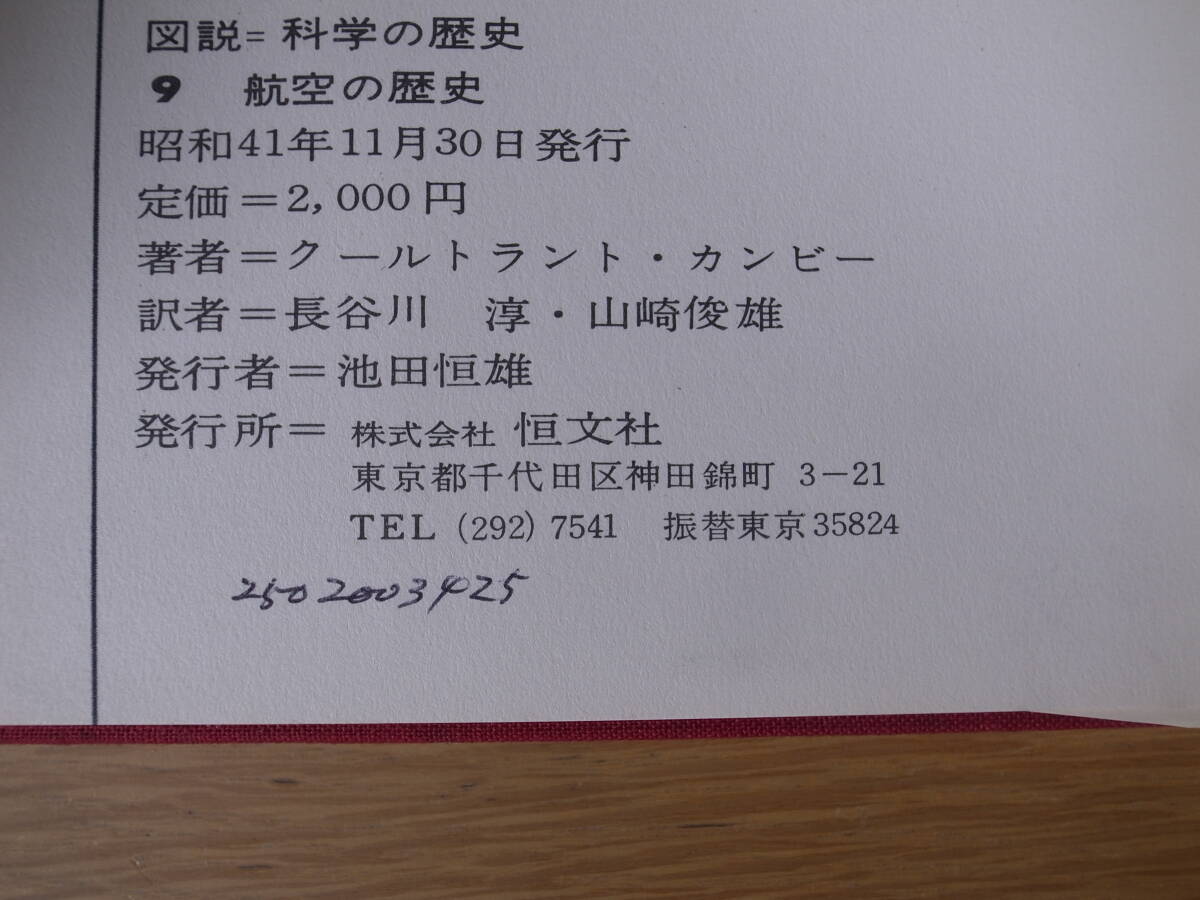 図説=科学の歴史
9 航空の歴史
昭和41年11月30日発行
定価=2,000円
著者=クールトラント・カンビー
訳者=長谷川 淳・山崎俊雄
発行者=池田恒雄
発行所=株式会社 恒文社
東京都千代田区神田錦町 3-21
TEL (292) 7541 振替東京35824
2502003425